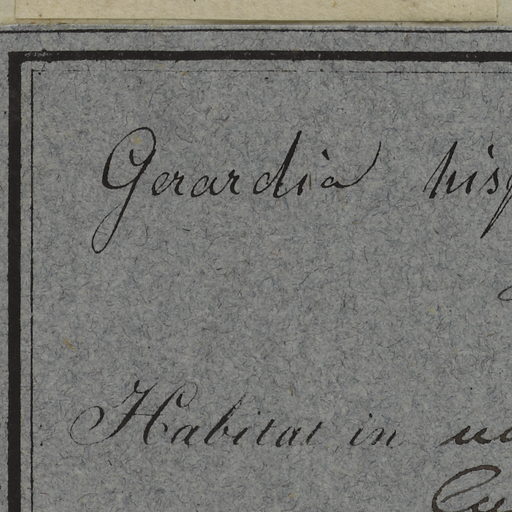 Gerardia hisp
Habitat in